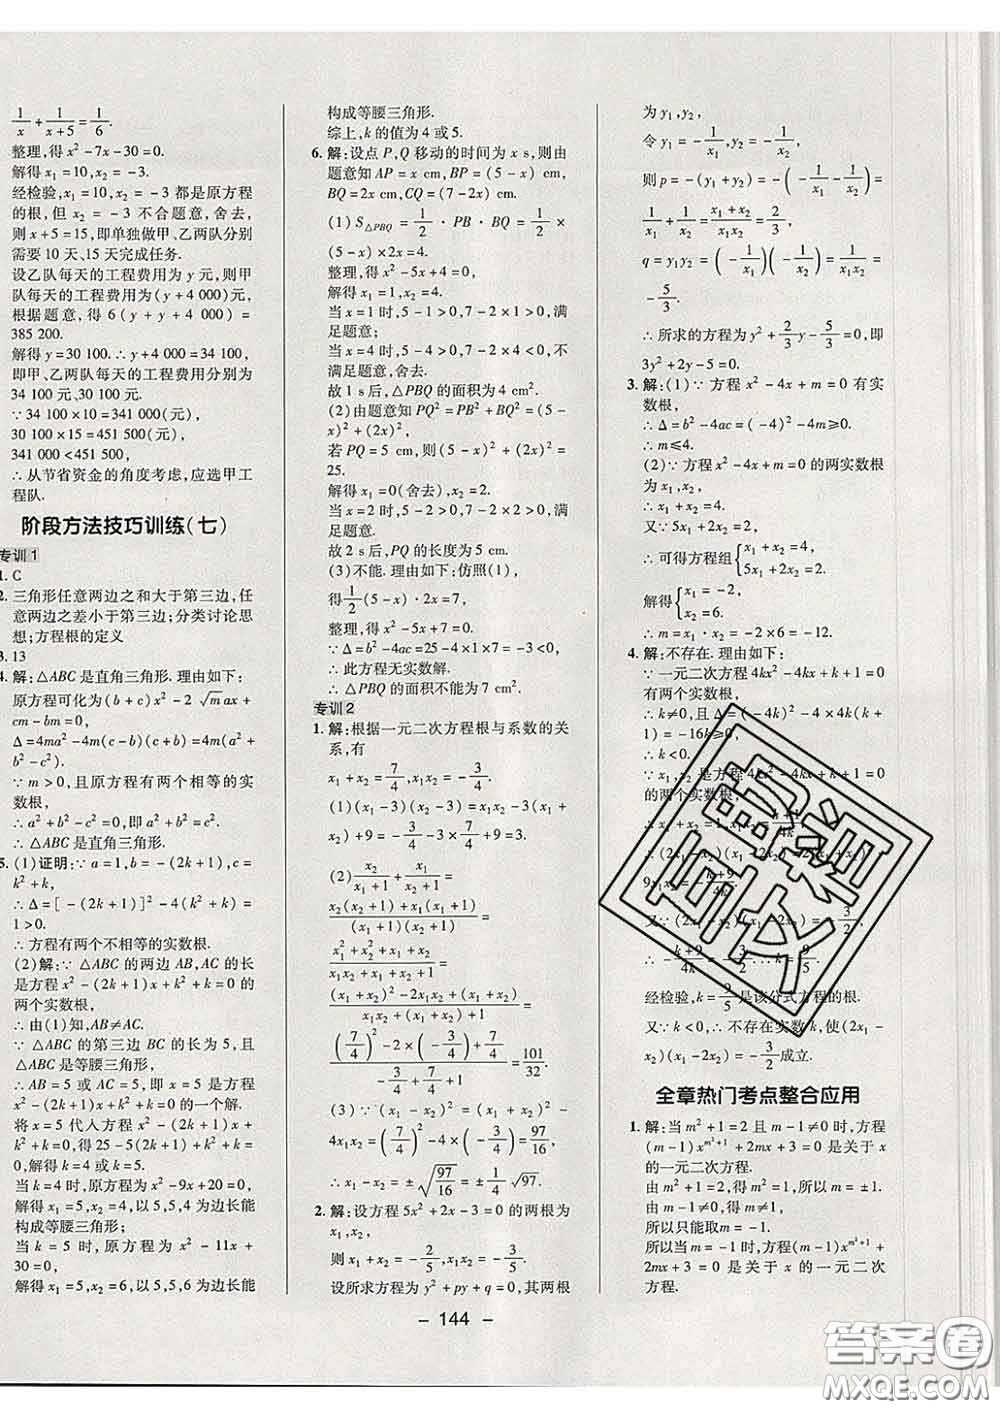 1/x + 1/(x+5) = 1/6.
整理,得 x²-7x-30=0.
解得 x₁=10,x₂=-3.
经检验,x₁=10,x₂=-3 都是原方程
的根,但 x₂=-3 不合题意,舍去,
则 x+5=15,即单独做甲、乙两队分别
需要 10 天、15 天完成任务.
设乙队每天的工程费用为 y 元,则甲
队每天的工程费用为(y+4 000)元,
根据题意,得 6(y+y+4 000)=
385 200.
解得 y=30 100.∴y+4 000=34 100,
即甲、乙两队每天的工程费用分别为
34 100 元、30 100 元.
∵34 100×10=341 000(元),
30 100×15=451 500(元),
341 000<451 500,
∴从节省资金的角度考虑,应选甲工
程队.
阶段方法技巧训练(七)
专训1
1. C
2. 三角形任意两边之和大于第三边,任
意两边之差小于第三边;分类讨论思
想;方程根的定义
3. 13
4. 解:△ABC是直角三角形.理由如下:
原方程可化为(b+c)x²-2√m ax+
cm-bm=0,
Δ=4ma²-4m(c-b)(c+b)=4m(a²+
b²-c²).
∵m>0,且原方程有两个相等的实
数根,
∴a²+b²-c²=0,即 a²+b²=c².
∴△ABC 是直角三角形.
5. (1)证明:∵a=1,b=-(2k+1),c=
k²+k,
∴Δ=[-(2k+1)]²-4(k²+k)=
1>0.
∴方程有两个不相等的实数根.
(2)解:∵△ABC 的两边 AB,AC 的长
是方程 x²-(2k+1)x+k²+k=0 的
两个实数根,
∴由(1)知,AB≠AC.
∵△ABC 的第三边 BC 的长为 5,且
△ABC 是等腰三角形,
∴AB=5 或 AC=5,即 x=5 是方程
x²-(2k+1)x+k²+k=0 的一个解.
将 x=5 代入方程 x²-(2k+1)x+
k²+k=0,得 25-5(2k+1)+k²+k=
0,解得 k=4 或 k=5.
当 k=4 时,原方程为 x²-9x+20=0,
解得 x₁=5,x₂=4,以5,5,4为边长能
构成等腰三角形;
当 k=5 时,原方程为 x²-11x+
30=0,
解得 x₁=5,x₂=6,以5,5,6为边长能
构成等腰三角形.
综上,k 的值为 4 或 5.
6. 解:设点 P,Q 移动的时间为 x s,则由
题意知 AP=x cm,PB=(5-x) cm,
BQ=2x cm,CQ=(7-2x) cm.
(1) S△PBQ=1/2·PB·BQ=1/2×
(5-x)·2x=4,
整理,得 x²-5x+4=0,
解得 x₁=1,x₂=4.
当 x=1 时,5-1>0,7-2×1>0,满
足题意;
当 x=4 时,5-4>0,7-2×4<0,不
满足题意,舍去.
故 1 s后,△PBQ 的面积为 4 cm².
(2)由题意知 PQ²=PB²+BQ²=(5-
x)²+(2x)²,
若 PQ=5 cm,则(5-x)²+(2x)²=
25.
解得 x₁=0(舍去),x₂=2.
当 x=2 时,5-2>0,7-2×2>0,满
足题意.
故 2 s后,PQ 的长度等于 5 cm.
(3)不能. 理由如下:仿照(1),
得 1/2(5-x)·2x=7.
整理,得 x²-5x+7=0.
∵Δ=b²-4ac=25-4×1×7=-3<0,
∴此方程无实数解.
∴△PBQ 的面积不能为 7 cm².
专训2
1. 解:根据一元二次方程根与系数的关
系,有
x₁+x₂=7/4,x₁x₂=-3/4.
(1)(x₁-3)(x₂-3)=x₁x₂-3(x₁+
x₂)+9=-3/4-3×7/4+9=3.
(2) x₂/(x₁+1) + x₁/(x₂+1) =
[x₂(x₂+1)+x₁(x₁+1)]/[(x₁+1)(x₂+1)] =
(x₁²+x₂²+x₁+x₂)/(x₁x₂+x₁+x₂+1) =
[(x₁+x₂)²-2x₁x₂+(x₁+x₂)]/[x₁x₂+(x₁+x₂)+1] =
[(7/4)²-2×(-3/4)+7/4]/(-3/4+7/4+1) = 101/32.
(3)∵(x₁-x₂)²=(x₁+x₂)²-
4x₁x₂=(7/4)²-4×(-3/4)=97/16,
∴x₁-x₂=±√(97/16)=±1/4 √97.
2. 解:设方程 5x²+2x-3=0 的两根为
x₁,x₂,
则 x₁+x₂=-2/5,x₁x₂=-3/5.
设所求方程为 y²+py+q=0,其两根
为 y₁,y₂,
令 y₁=-1/x₁,y₂=-1/x₂.
则 p=-(y₁+y₂)=-(-1/x₁-1/x₂)=
1/x₁+1/x₂=(x₁+x₂)/(x₁x₂)=2/3,
q=y₁y₂=(-1/x₁)(-1/x₂)=1/(x₁x₂)=
-5/3.
∴所求的方程为 y²+2/3y-5/3=0,即
3y²+2y-5=0.
3. 解:(1)∵方程 x²-4x+m=0 有实
数根,
∴Δ=b²-4ac=(-4)²-4m≥0.
∴m≤4.
(2)∵方程 x²-4x+m=0的两实数根
为 x₁,x₂,
∴x₁+x₂=4.
又∵5x₁+2x₂=2,
∴可得方程组{x₁+x₂=4, 5x₁+2x₂=2,
解得{x₁=-2, x₂=6.
∴m=x₁·x₂=-2×6=-12.
4. 解:不存在. 理由如下:
∵一元二次方程 4kx²-4kx+k+1=0
有两个实数根,
∴k≠0,且Δ=(-4k)²-4×4k(k+
1)=-16k≥0,
∴k<0.
∵x₁,x₂是方程 4kx²-4kx+k+1=0
的两个实数根,
∴x₁+x₂=1,x₁x₂=(k+1)/4k.
∴(2x₁-x₂)(x₁-2x₂)=2(x₁+x₂)²-
9x₁x₂=-(k+9)/4k.
又∵(2x₁-x₂)(x₁-2x₂)=-3/2,
∴-(k+9)/4k=-3/2.∴k=9/5.
经检验,k=9/5是该分式方程的根.
又∵k<0,∴不存在实数 k,使(2x₁-
x₂)(x₁-2x₂)=-3/2成立.
全章热门考点整合应用
1. 解:当 m²+1=2 且 m-1≠0时,方程
(m-1)x^(m²+1)+2mx+3=0 是关于 x
的一元二次方程.
由 m²+1=2,得 m²=1,所以 m=±1.
由 m-1≠0,得 m≠1,
所以只能取m=-1.
所以当 m=-1时,方程(m-1)x^(m²+1)+
2mx+3=0 是关于 x 的一元二次
方程.
- 144 -
答案卷
MXQE.COM